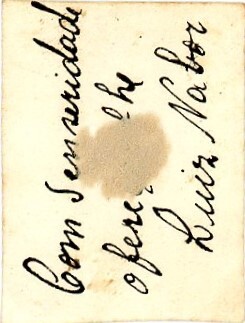 Com Senseridade
ofere he
Luiz Nabor